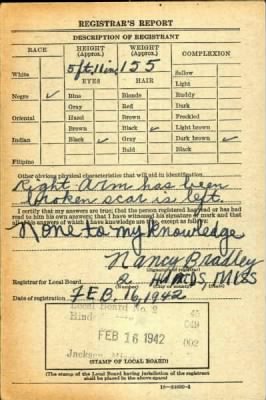 REGISTRAR'S REPORT
DESCRIPTION OF REGISTRANT
RACE HEIGHT (Approx.) WEIGHT (Approx.) COMPLEXION
5 ft. 11 in. 155
White EYES HAIR Sallow
Light
Negro ✓ Blue Blonde Ruddy
Gray Red Dark
Oriental Hazel Brown Freckled
Brown Black ✓ Light brown
Indian Black ✓ Gray Dark brown ✓
Bald Black
Filipino
Other obvious physical characteristics that will aid in identification
Right Arm has been
broken scar is left.
I certify that my answers are true; that the person registered has read or has had
read to him his own answers; that I have witnessed his signature or mark and that
all of his answers of which I have knowledge are true, except as follows:
None to my knowledge
Nancy Bradley
(Signature of registrar)
Registrar for Local Board 2 HINDS, MISS
Date of registration FEB. 16, 1942
Local Board No. 2 45
Hinds 049
FEB 16 1942 002
Jackson,
(STAMP OF LOCAL BOARD)
(The stamp of the Local Board having jurisdiction of the registrant
shall be placed in the above space)